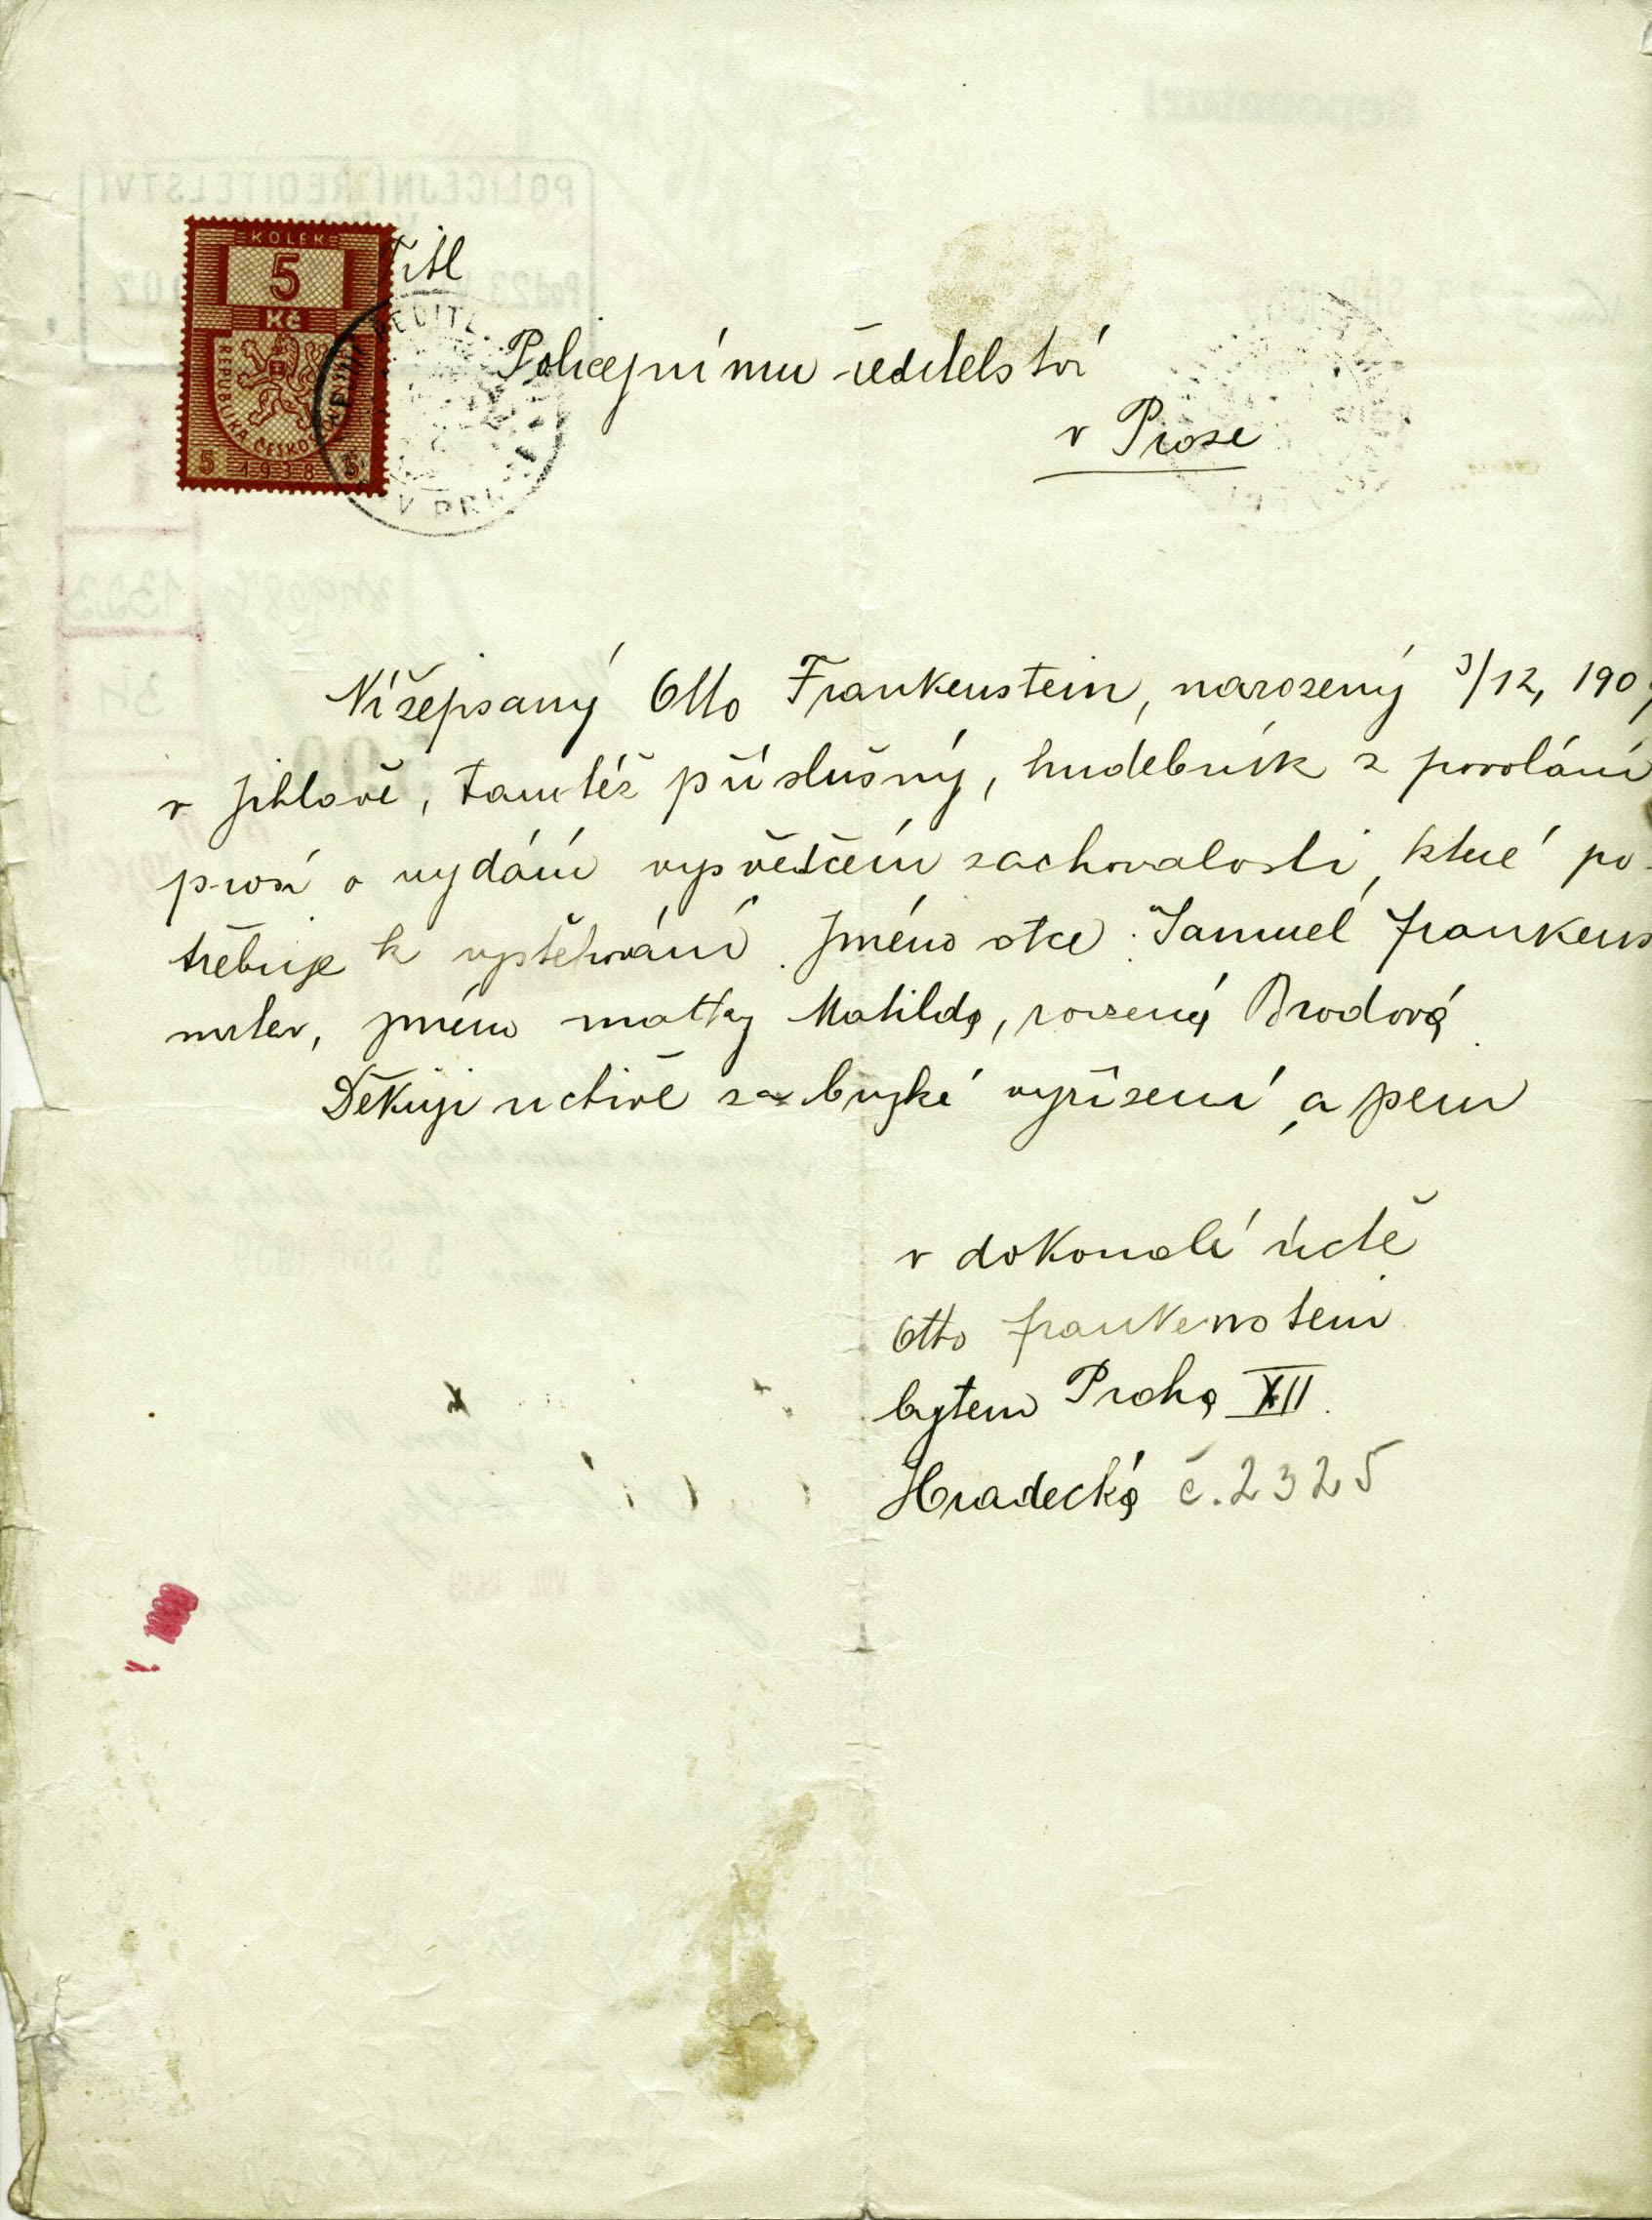 KOLEK
5
Kč
REPUBLIKA ČESKOSLOVENSKÁ
5 1938 5
Titl
Policejnímu ředitelství
v Praze
V PRAZE
Nížepsaný Otto Frankenstein, narozený 3/12, 190
v Jihlavě, tamtéž příslušný, hudebník z povolání
prosí o vydání vysvědčení zachovalosti, které po-
třebuje k vystěhování. Jméno otce: Samuel Frankens
mrtev, jméno matky Matilda, rozená Brodová.
Děkuji uctivě za brzké vyřízení, a jsem
v dokonalé úctě
Otto Frankenstein
bytem Praha XII.
Hradecká č. 2325